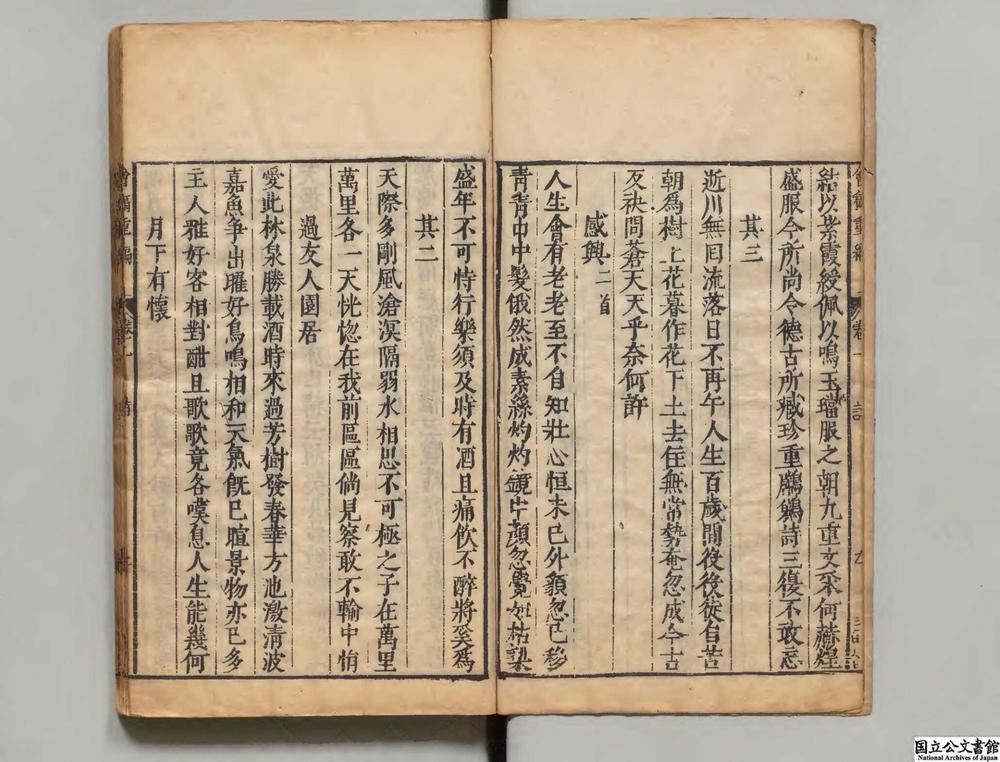 結以紫霞綬佩以鳴玉璫服之朝九重文采何赫煌
盛服今所尚令德古所臧珍重鶺鴒詩三復不敢忘
其三
逝川無囘流落日不再午人生百歲間役役徒自苦
朝爲樹上花暮作花下土去住無常勢奄忽成今古
反袂問蒼天天乎奈何許
感興二首
人生會有老老至不自知壯心恒未已外貌忽已移
靑靑巾中髮俄然成素絲灼灼鏡中顔忽覺如枯梨
盛年不可恃行樂須及時有酒且痛飲不醉將奚爲
其二
天際多剛風滄溟隔弱水相思不可極之子在萬里
萬里各一天恍惚在我前區區倘見察敢不輸中悁
過友人園居
愛此林泉勝載酒時來過芳樹發春華方池激清波
嘉魚爭出躍好鳥鳴相和天氣旣已暄景物亦已多
主人雅好客相對酣且歌歌竟各嘆息人生能幾何
月下有懷
國立公文書館
National Archives of Japan